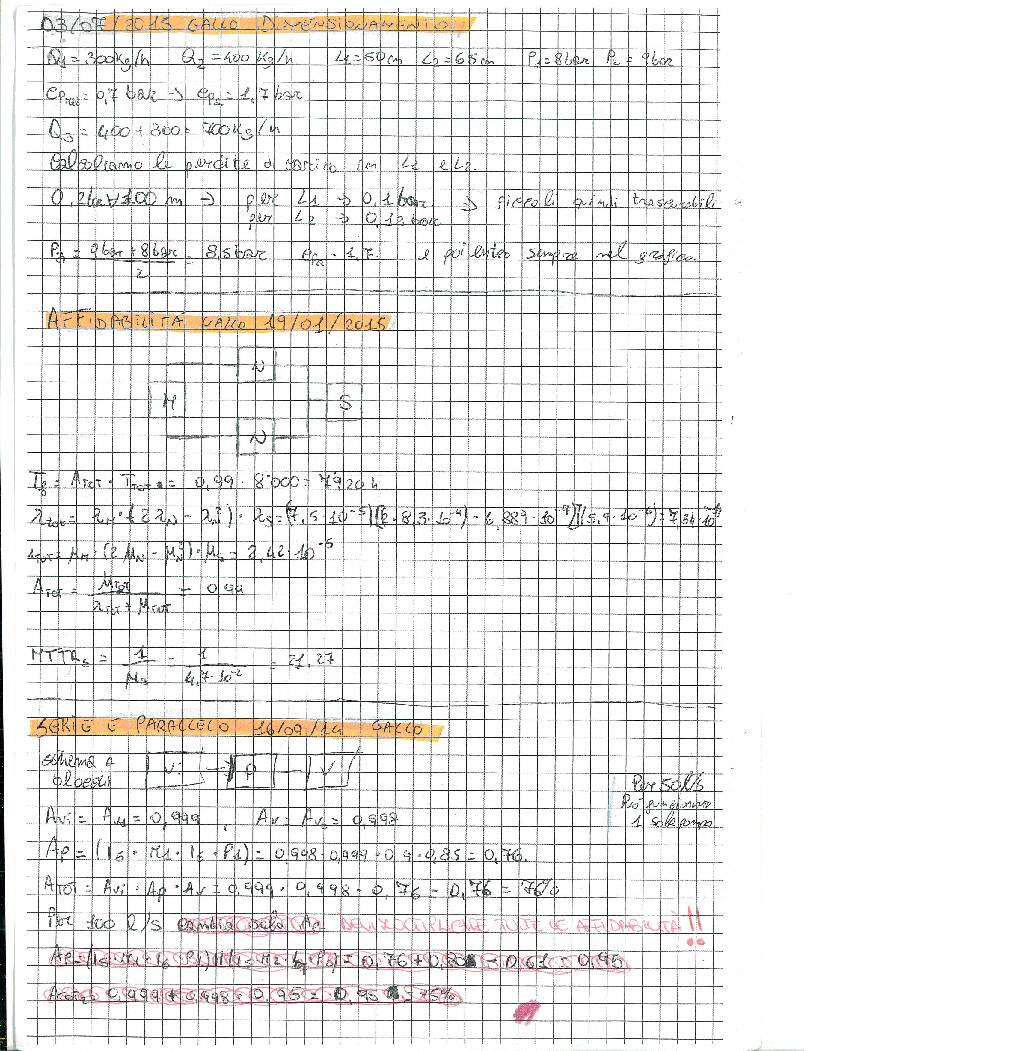 03/07/2015 GALLO DIMENSIONAMENTO
Q1 = 300kg/h Q2 = 400 kg/h L1 = 50cm L2 = 65cm P1 = 8bar P2 = 9bar
= 0,7 bar → = 1,7 bar
Q3 = 400 + 300 = 700kg/h
Calcoliamo le perdite di carico in L1 e L2.
0,2bar/100 m ⇒ per L1 → 0,1bar ⇒ piccoli quindi trascurabili
per L2 → 0,12bar
P3 = (9bar + 8bar)/2 = 8,5bar = 1,7 e poi entro sempre nel grafico
AFFIDABILITÀ GALLO 19/01/2015
N
M S
N
= ATOT · TTOT = 0,99 · 8000 = 7920 h
λTOT = λM · (2λN - λN²) · λS = (7,5·10⁻⁵)
μTOT = μM · (2μN - μN²) · μS = 2,42·10⁻⁵
ATOT = μTOT/(λTOT + μTOT) = 0,99
MTTRS = 1/μS = 1/(4,7·10⁻²) = 21,27
SERIE E PARALLELO 16/09/14 GALLO
schema a Vi → P — V
blocchi
Per 50 l/s
Può funzionare
1 sola pompa
AVi = AV1 = 0,999 , AV = AV3 = 0,998
Ap = (I5 · M1 · I6 · P1) = 0,998·0,999·0,9·0,85 = 0,76.
ATOT = AVi · Ap · AV = 0,999 · 0,998 · 0,76 = 0,76 = 76%
Per 100 l/s cambia solo Ap DEVI MOLTIPLICARE TUTTE LE AFFIDABILITÀ!!
= 0,76 + 0,80 - 0,61 = 0,95
0,999 · 0,998 · 0,95 = 0,95 95%